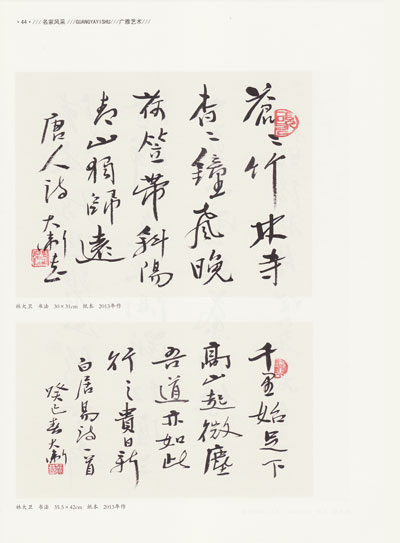 ·44·///名家风采///GUANGYAYISHU///广雅艺术///
蒼〻竹林寺
杳〻鐘声晚
荷笠帶斜陽
青山獨歸遠
唐人詩 大衛
林大卫 书法 50×51cm 纸本 2013年作
千里始足下
高山起微塵
吾道亦如此
行之貴日新
白居易詩一首
癸巳春大衛
林大卫 书法 35.5×42cm 纸本 2013年作